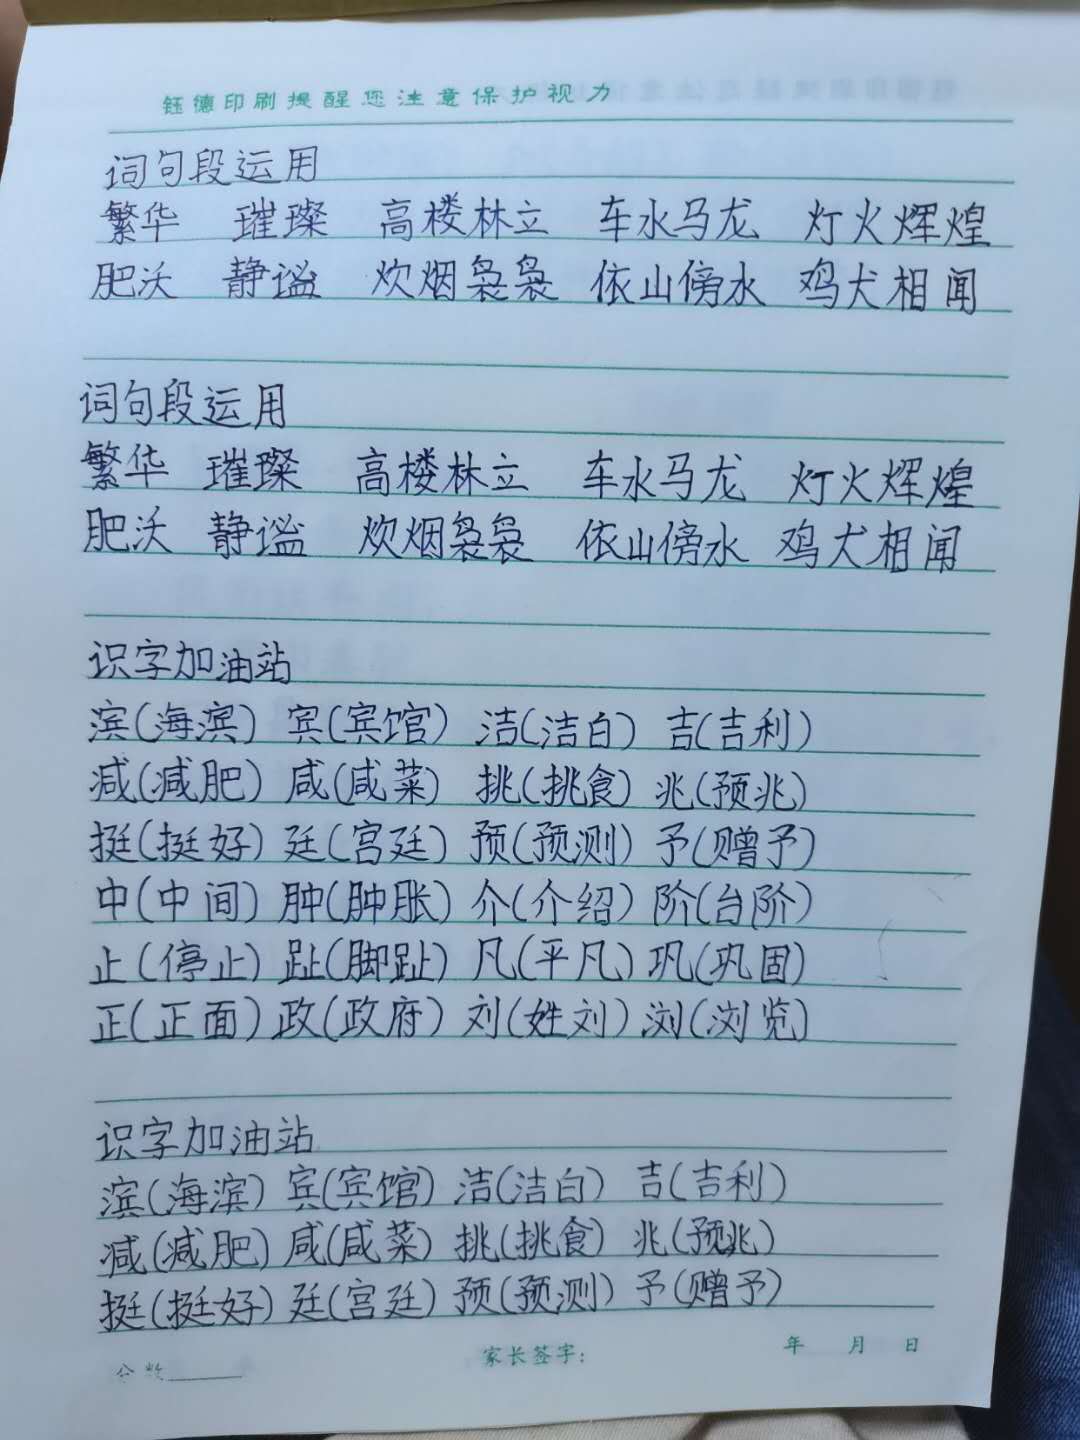 钰德印刷提醒您注意保护视力
词句段运用
繁华 璀璨 高楼林立 车水马龙 灯火辉煌
肥沃 静谧 炊烟袅袅 依山傍水 鸡犬相闻
词句段运用
繁华 璀璨 高楼林立 车水马龙 灯火辉煌
肥沃 静谧 炊烟袅袅 依山傍水 鸡犬相闻
识字加油站
滨(海滨) 宾(宾馆) 洁(洁白) 吉(吉利)
减(减肥) 咸(咸菜) 挑(挑食) 兆(预兆)
挺(挺好) 廷(宫廷) 预(预测) 予(赠予)
中(中间) 肿(肿胀) 介(介绍) 阶(台阶)
止(停止) 趾(脚趾) 凡(平凡) 巩(巩固)
正(正面) 政(政府) 刘(姓刘) 浏(浏览)
识字加油站
滨(海滨) 宾(宾馆) 洁(洁白) 吉(吉利)
减(减肥) 咸(咸菜) 挑(挑食) 兆(预兆)
挺(挺好) 廷(宫廷) 预(预测) 予(赠予)
分数______ 家长签字: 年 月 日